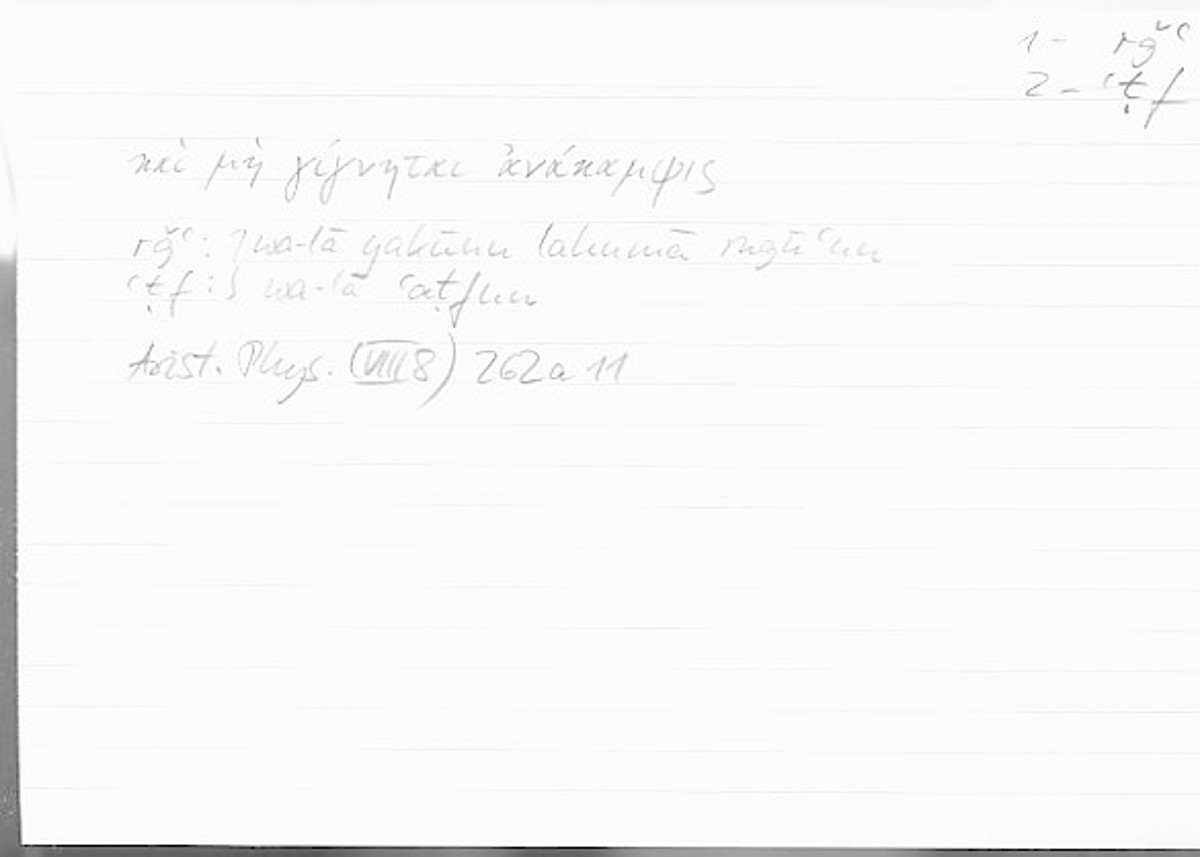 1 - rǧʿ
2 - ʿṭf
καὶ μὴ γίγνηται ἀνάκαμψις
rǧʿ : } wa-lā yakūnu lahumā ruǧūʿun
ʿṭf : } wa-lā ʿaṭfun
Arist. Phys. (VIII 8) 262a 11